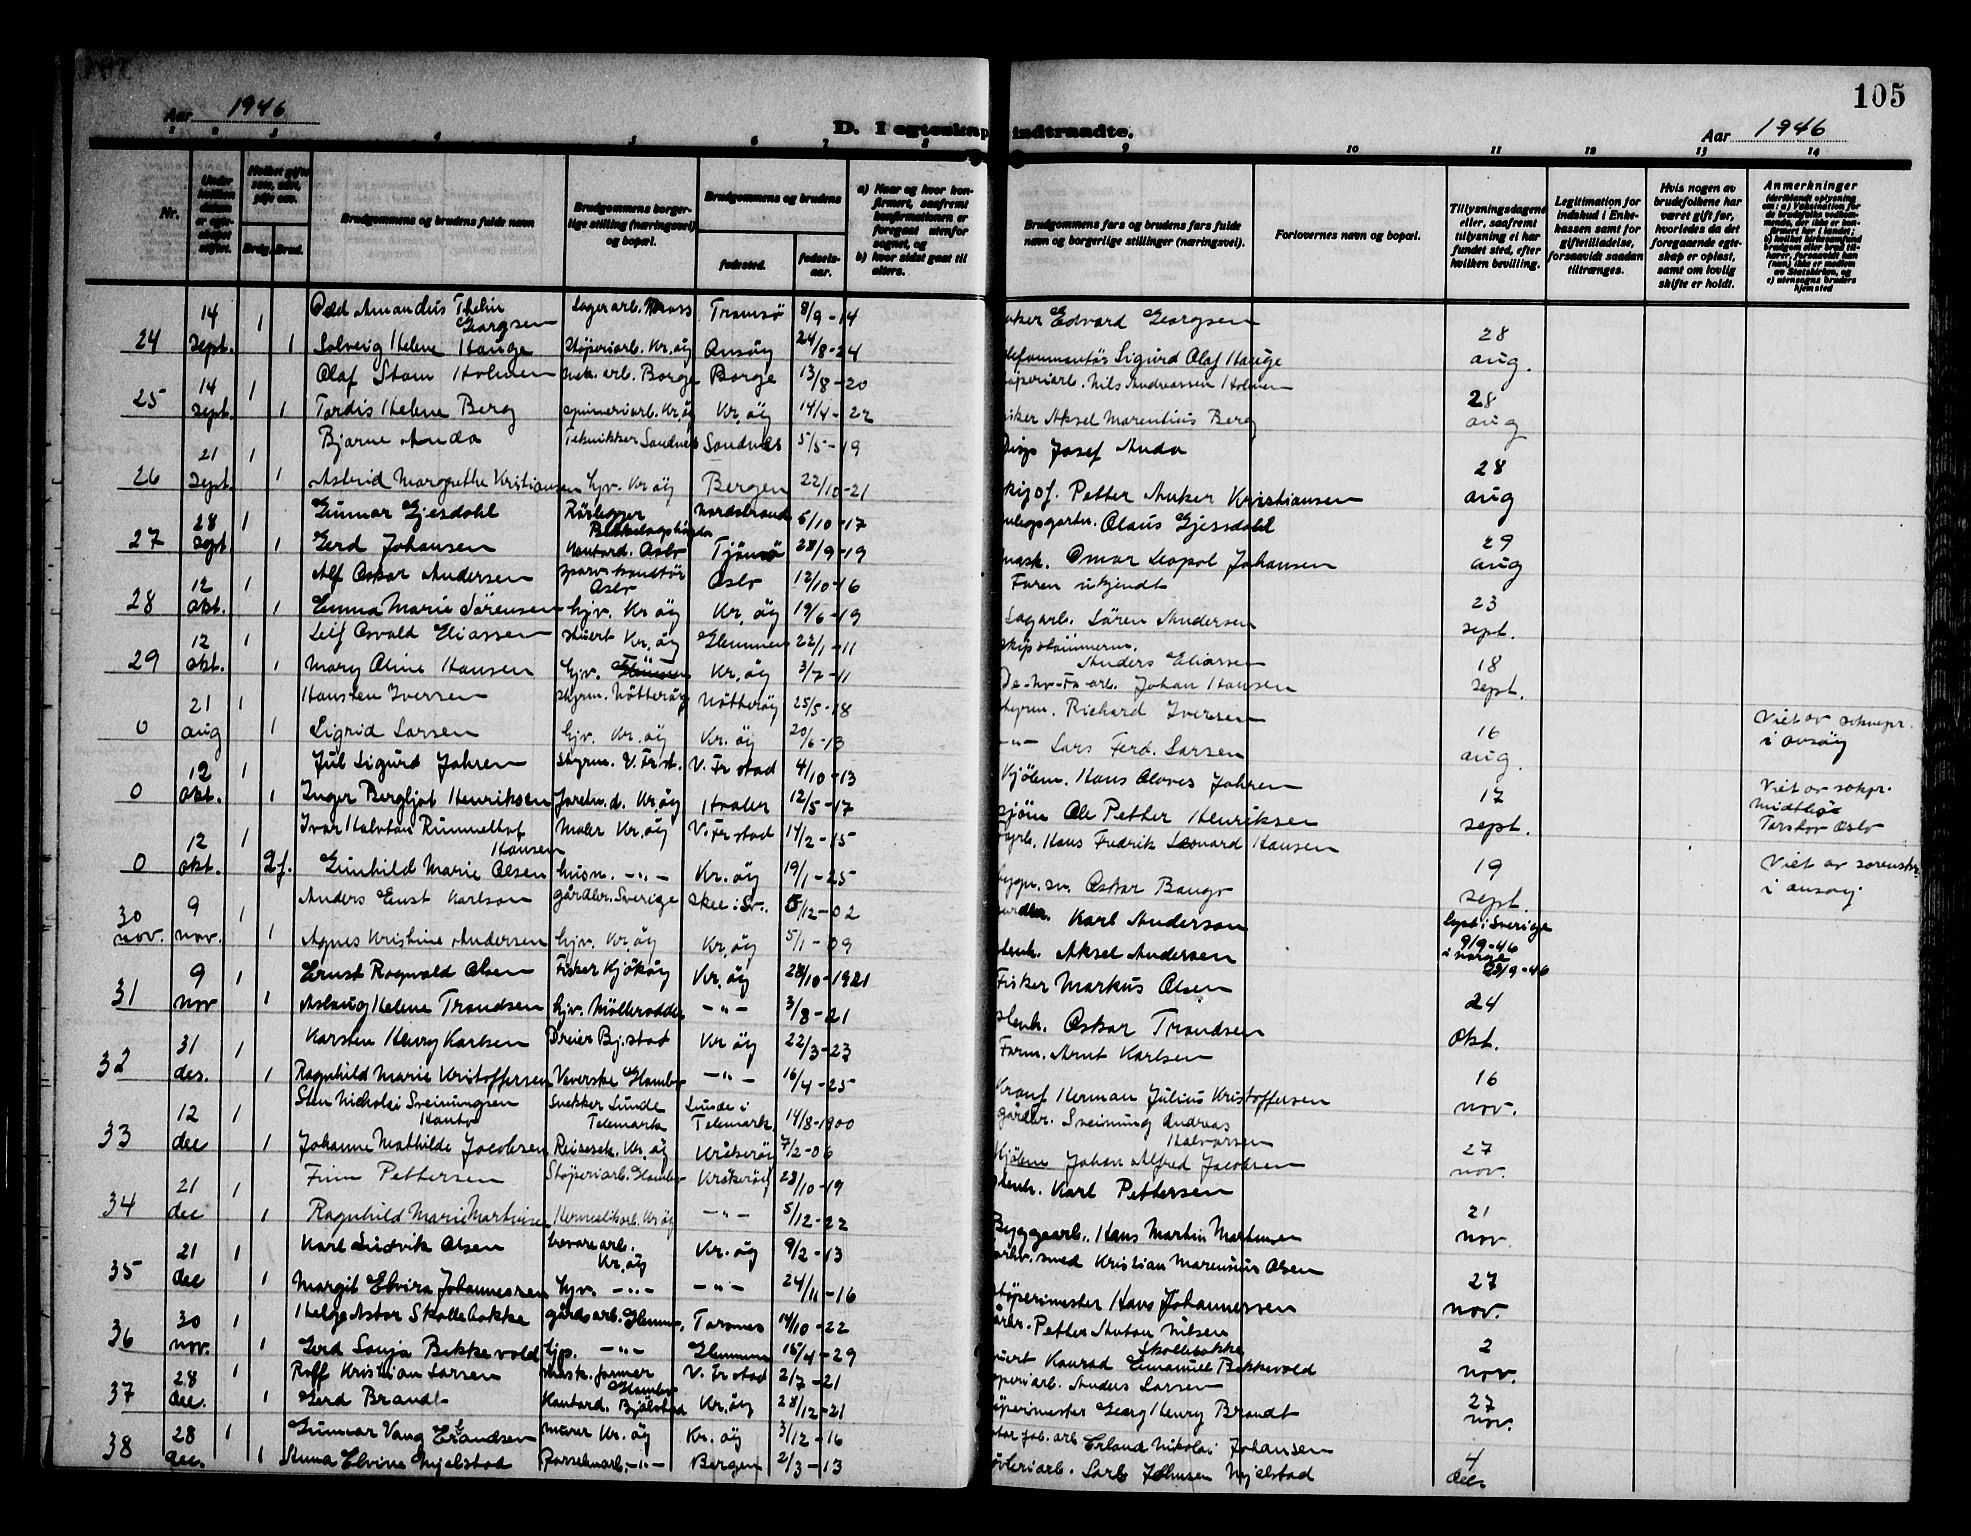 105
Aar 1946
D. I egteskap indtraadte.
Aar 1946
1 2 3 4 5 6 7 8 9 10 11 12 13 14
Nr.
Under hvilken datum er egteskabet stiftet.
Hvilket gifte som, enke, gift osv.
Brudg. Brud.
Brudgommens og brudens fulde navn
Brudgommens borgerlige stilling (næringsvei) og bopæl.
Brudgommens og brudens
fødested.
fødselsaar.
a) Naar og hvor konfirmert, saafremt konfirmationen er foregaat utenfor sognet, og
b) hvor sidst gaat til alters.
Brudgommens fars og brudens fars fulde navn og borgerlige stillinger (næringsvei).
Forlovernes navn og bopæl.
Tillysningsdagene eller, saafremt tillysning ei har fundet sted, efter hvilken bevilling.
Legitimation for indskud i Enkekassen samt for giftetilladelse, forsaavidt saadan tiltrænges.
Hvis nogen av brudefolkene har været gift før, hvorledes da det foregaaende egteskap er opløst, samt om lovlig skifte er holdt.
Anmerkninger
24 14 sept. 1 Odd Amandus Thelin Georgsen Lagerarb. Moss Tromsö 8/9-14 Edvard Georgsen 28 aug.
1 Solveig Helene Hauge Stöperiarb. Kr.öy Onsöy 24/8-24 Sigurd Olaf Hauge
25 14 sept. 1 Olaf Stam Holmen arb. Borge Borge 13/8-20 Nils Andreassen Holmen 28 aug
1 Tordis Helene Berg spinneriarb. Kr.öy Kr.öy 14/4-22 Aksel Marentius Berg
26 21 sept. 1 Bjarne Anda Tekniker Sandnes Sandnes 5/5-19 Josef Anda 28 aug
1 Astrid Margrethe Kristiansen hjv. Kr.öy Bergen 22/10-21 Petter Anker Kristiansen
27 28 sept 1 Gunnar Gjesdahl Rörlegger Bekkelagshögda Nordstrand 6/10-17 Olaus Gjessdahl 29 aug
1 Gerd Johansen Kontord. Oslo Tjömö 28/9-19 mask. Omar Leopol Johansen
28 12 okt. 1 Alf Oskar Andersen Oslo Oslo 12/10-16 Faren ukjendt 23 sept.
1 Emma Marie Sörensen hjv. Kr.öy Kr.öy 19/6-19 Sagarb. Sören Andersen
29 12 okt. 1 Leif Osvald Eliassen stuert Kr.öy Glemmen 22/1-11 skipstömmerm. Anders Eliassen 18 sept.
1 Mary Oline Hansen hjv. Kr.öy 3/7-11 De-No-Fa arb. Johan Hansen
0 21 aug 1 Hansten Iversen styrm. Nötteröy Nötteröy 25/5-18 styrm. Richard Iversen 16 aug. Viet av soknepr.
1 Sigrid Larsen hjv. Kr.öy Kr.öy 20/6-13 -"- Lars Ferd. Larsen i onsöy
0 12 okt. 1 Jul Sigurd Jahren styrm. V. Fr.st. V. Fr stad 4/10-13 Kjölem. Hans Olaves Jahren 17 sept. Viet av sokpr.
1 Inger Bergljot Henriksen Forretn.d. Kr.öy Hvaler 12/5-17 sjöm Ole Petter Henriksen Torshov Oslo
0 12 okt. 1 Ivar Halvtan Rummelhof Hansen Maler Kr.öy V. Fr stad 14/2-15 Hans Fredrik Leonard Hansen 19 sept Viet av sorenskr.
2 f. Gunhild Marie Olsen husm. -"- Kr.öy 19/1-25 Oskar Bauge i onsöy.
30 nov. 9 nov. 1 Anders Ernst Karlson gårdbr. Sverige Skee i Sv. 5/12-02 Karl Anderson Lyst i Sverige 9/9-46
1 Agnes Kristine Andersen hjv. Kr.öy Kr.öy 5/1-09 stenh. Aksel Andersen i norge 23/9-46
31 9 nov 1 Ernst Ragnvald Olsen Fisker Kjököy Kr.öy 28/10-1921 Fisker Markus Olsen 24 okt.
1 Aslaug Helene Trondsen hjv. Möllerodden -"- 3/8-21 stenh. Oskar Trondsen
32 31 des. 1 Karsten Henry Karlsen Dreier Bj.stad Kr.öy 22/3-23 Form. Arnt Karlsen 16 nov.
1 Ragnhild Marie Kristoffersen Veverske Glombo -"- 16/4-25 Herman Julius Kristoffersen
33 12 dec 1 Sten Nicholai Sveinungsen Snekker Lunde Telemark Lunde i Telemark 14/8-1900 gårdbr. Sveinung Andreas Halvorsen 27 nov.
1 Johanne Mathilde Jacobsen Reisesek. Kr.öy Kråkeröy 7/2-06 Kjölem Johan Alfred Jacobsen
34 21 dec 1 Finn Pettersen Stöperiarb. Glombo Kråkeröy 28/10-19 stenh. Karl Pettersen 21 nov.
1 Ragnhild Marie Martinsen Hermetikarb. Kr.öy -"- 5/12-22 Byggearb. Hans Martin Martinsen
35 21 dec 1 Karl Ludvik Olsen Kr.öy Kr.öy 9/2-13 smed Kristian Marensius Olsen 27 nov.
1 Margit Elvira Johannessen hjv. -"- -"- 24/11-16 Stöperimester Hans Johannessen
36 30 nov. 1 Helge Astor Skollebokke gårdsarb. Glemm. Torsnes 14/10-22 Petter Anton Nilsen Skollebokke 2 nov.
1 Gerd Sonja Bekkevold hjp. -"- Glemmen 15/4-29 Konrad Emanuel Bekkevold
37 28 dec. 1 Rolf Kristian Larsen Mask.former Glombo V. Fr stad 2/7-21 Anders Larsen 27 nov.
1 Gerd Brandt Kontord. Bjölstad Kr.öy 28/12-21 Stöperimester Georg Henry Brandt
38 28 dec. 1 Gunnar Vang Erlandsen murer Kr.öy Kr.öy 3/12-16 Erland Nikolai Johansen 4 dec.
1 Anna Elvine Mjelstad -"- Bergen 2/3-13 Mjelstad